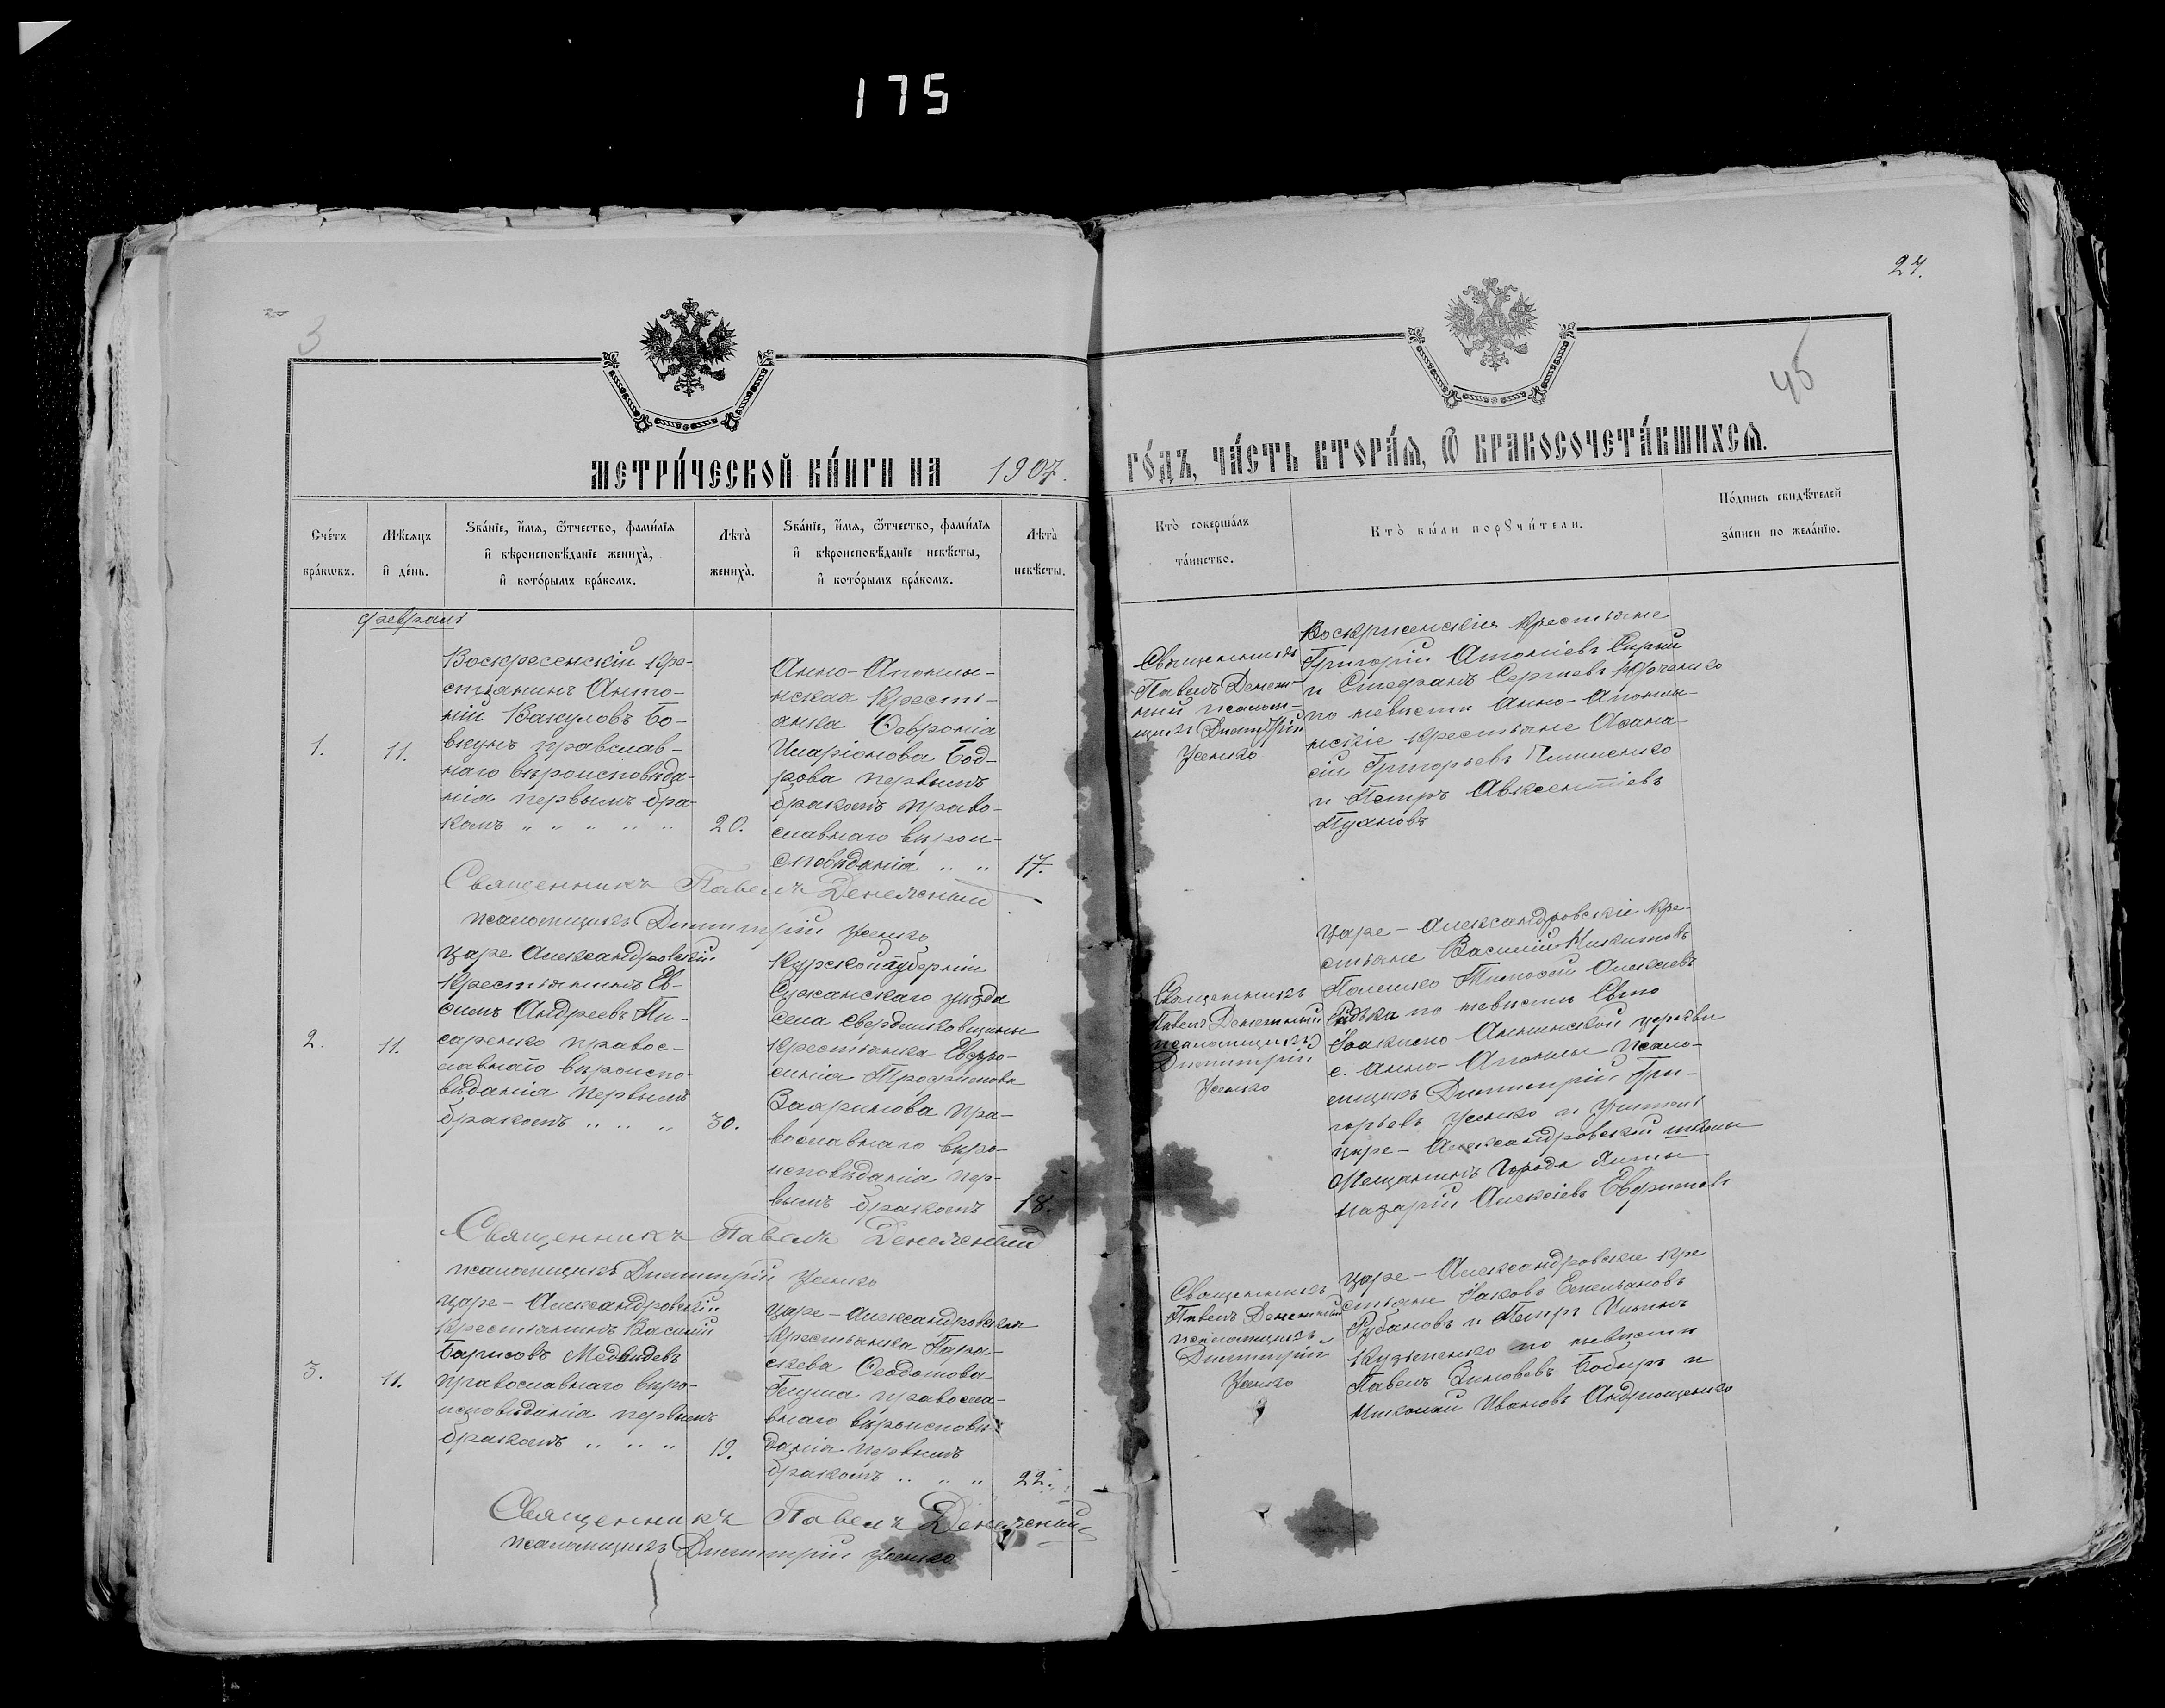 175
27.
3
45
МЕТРИ́ЧЕСКОЙ КНИ́ГИ НА 1907. ГО́ДЪ, ЧА́СТЬ ВТОРА́Я, Ѿ БРАКОСОЧЕТА́ВШИХСЯ.
Сче́тъ бра́ковъ.
Мѣ́сяцъ и҆ де́нь.
Зва́нїе, и҆́мя, ѻ҆́тчество, фами́лїя и҆ вѣроисповѣ́данїе жениха̀, и҆ кото́рымъ бра́комъ.
Лѣ́та̀ жениха̀.
Зва́нїе, и҆́мя, ѻ҆́тчество, фами́лїя и҆ вѣроисповѣ́данїе невѣ́сты, и҆ кото́рымъ бра́комъ.
Лѣ́та̀ невѣ́сты.
Кто̀ соверша́лъ та́инство.
Кто̀ бы́ли порꙋчи́тели.
По́дпись свидѣ́телей за́писи по жела́нїю.
февраль
1.
11.
Воскресенскій кре-
стьянинъ Анто-
ній Вакуловъ Бо-
вкунъ правслав-
наго вѣроисповѣда-
нія первымъ бра-
комъ " " " " "
20.
Анно-Апонлы-
нская Крестъ-
янка Февронія
Иларіонова Бод-
рова первымъ
бракомъ право-
славнаго вѣрои-
споведанія " "
17.
Священникъ
Павелъ Денеж-
ный псалом-
щикъ Димитрій
Усенко
Воскрисенскія крестьяне
Григорій Атоніевъ Сирый
и Стефанъ Сергиевъ Юрченко
по невисти Анно-Апонлы-
нскіе крестьяне Афана-
сій Григорьевъ
и Петръ Авксентіевъ
Пухновъ
Священникъ Павелъ Денежный
псаломщикъ Димитрій Усенко
2.
11.
царе Александровскій
Крестьянинъ Ев-
фимъ Андреевъ Пи-
саренко правос-
лавнаго вѣроиспо-
вѣданія первымъ
бракомъ " " "
30.
Курской губерніи
Сужанскаго уѣзда
села Свердликовщины
крестьянка Евфро-
синія Трофимова
Зааримова пра-
вославнаго вѣро-
исповѣданія пер-
вымъ бракомъ
18.
Священникъ
Павелъ Денежный
псаломщикъ
Димитрій
Усенко
царе-Александровскіе Кре-
стьяне Василій Никитовъ
Тимофей Алексеевъ
по невисти Свято
Іоакимо-Аннинской церкви
с. Анно-Апонлы псало-
мщикъ Димитрій Гри-
горьевъ Усенко и Учитель
царе-Александровской школы
Мещанинъ города Ялты
Назарій Алексіевъ
Священникъ Павелъ Денежный
псаломщикъ Димитрій Усенко
3.
11.
царе-Александровскій
Крестьянинъ Василій
Барисовъ Медвидевъ
православнаго вѣро-
исповѣданія первымъ
бракомъ " " "
19.
царе-Александровская
Крестьянка Пара-
скева Феодотова
православ-
внаго вѣроисповѣ-
данія первымъ
бракомъ " " "
22.
Священникъ
Павелъ Денежный
псаломщикъ
Димитрій
Усенко
царе-Александровскіе кре
стьяне Іаковъ Емельяновъ
Рубановъ и Петръ
Кузьменко по невисти
Павелъ Бобыръ и
Николай Ивановъ Андрющенко
Священникъ Павелъ Денежный
псаломщикъ Димитрій Усенко